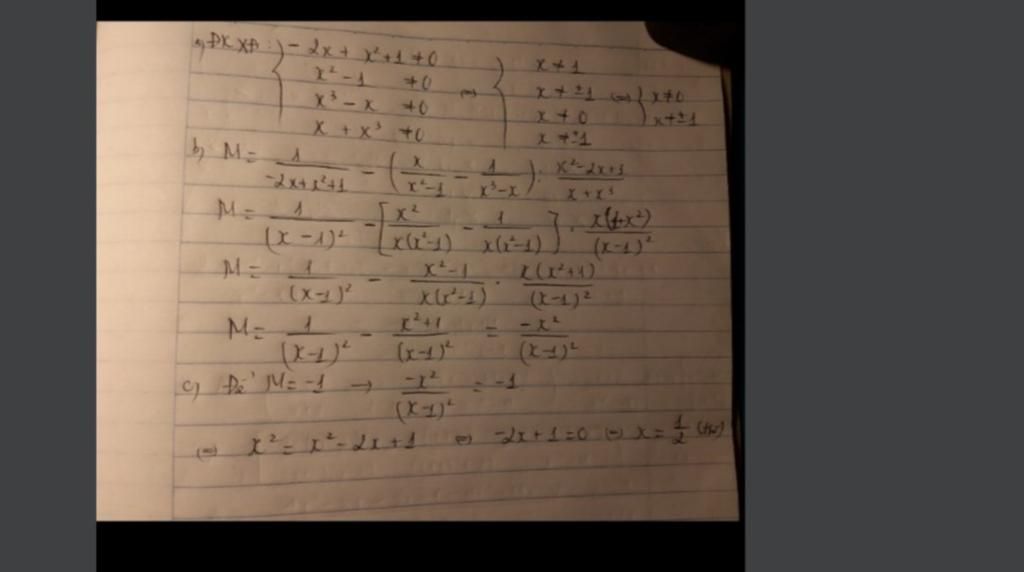 a) ĐKXĐ: { -2x + x² + 1 ≠ 0 ⇔ { x ≠ 1
x² - 1 ≠ 0 x ≠ ±1 ⇔ { x ≠ 0
x³ - x ≠ 0 x ≠ 0 x ≠ ±1
x + x³ ≠ 0 x ≠ ±1
b) M = 1/(-2x+x²+1) - (x/(x²-1) - 1/(x³-x)) : (x²-2x+1)/(x+x³)
M = 1/(x-1)² - [x²/(x(x²-1)) - 1/(x(x²-1))] . x(1+x²)/(x-1)²
M = 1/(x-1)² - (x²-1)/(x(x²-1)) . x(x²+1)/(x-1)²
M = 1/(x-1)² - (x²+1)/(x-1)² = -x²/(x-1)²
c) Để M = -1 → -x²/(x-1)² = -1
⇔ x² = x² - 2x + 1 ⇔ -2x + 1 = 0 ⇔ x = 1/2 (tm)